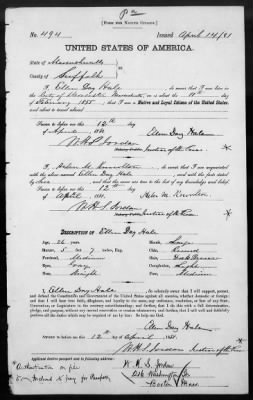 [FORM FOR NATIVE CITIZEN.]
No. 494 Issued April 14/81
UNITED STATES OF AMERICA.
State of Massachusetts
County of Suffolk
I, Ellen Day Hale
City of Worcester Massachusetts, on or about the 11th day
of February 1855, that I am a Native and Loyal Citizen of the United States,
and about to travel abroad.
Sworn to before me this 12th day
of April 1881. Ellen Day Hale
W. H. S. Jordan
Justice of the Peace
I, Helen M. Knowlton
Ellen Day Hale
to the best of my knowledge and belief.
Sworn to before me this 12th day
of April 1881. Helen M. Knowlton
W. H. S. Jordan
Justice of the Peace
DESCRIPTION OF Ellen Day Hale
Age, 26 years. Mouth,
Stature, 5 feet 7 inches, Eng. Chin, Round
Forehead, Medium Hair, Dark Brown
Eyes, Gray Complexion, Light
Nose, Straight Face, Medium
I, Ellen Day Hale, do solemnly swear that I will support, protect, and
defend the Constitution and Government of the United States against all enemies, whether domestic or foreign;
and that I will bear true faith, allegiance, and loyalty to the same, any ordinance, resolution, or law of any State,
Convention, or Legislature to the contrary notwithstanding; and further, that I do this with a full determination,
pledge, and purpose, without any mental reservation or evasion whatsoever; and further, that I will well and
faithfully perform all the duties which may be required of me by law: So help me God.
Ellen Day Hale
Sworn to before me this 12th day of April 1881.
W. H. S. Jordan Justice of the Peace
Applicant desires passport sent to following address:
W. H. S. Jordan
Washington St.
Boston Mass.